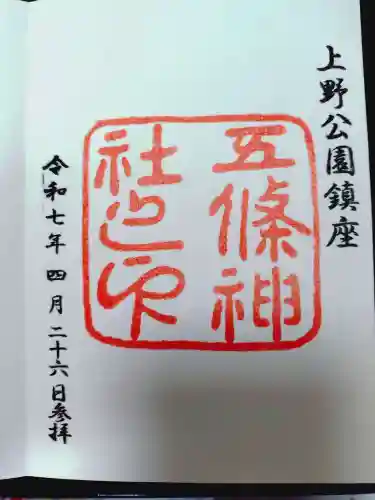 上野公園鎮座
五條神
社之印
令和七年四月二十六日参拝